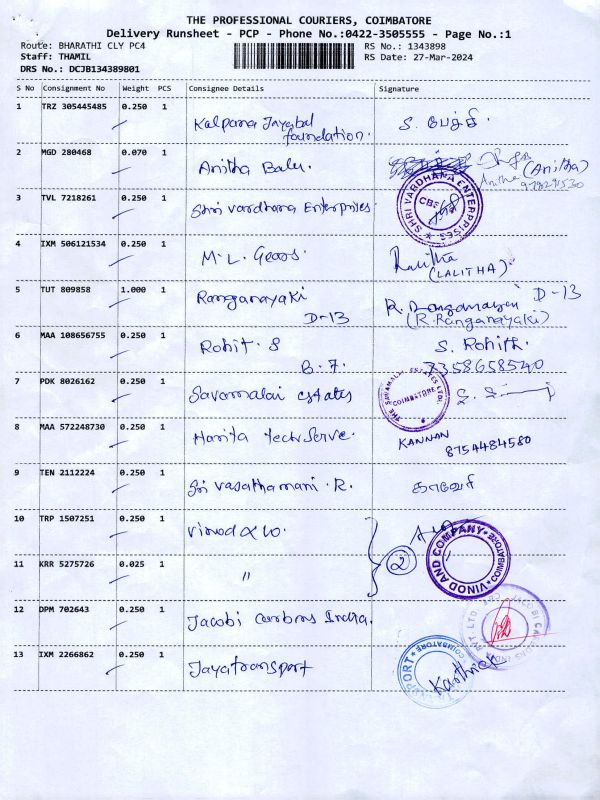 THE PROFESSIONAL COURIERS, COIMBATORE
Delivery Runsheet - PCP - Phone No.:0422-3505555 - Page No.:1
Route: BHARATHI CLY PC4 RS No.: 1343898
Staff: THAMIL RS Date: 27-Mar-2024
DRS No.: DCJB134389801
S No Consignment No Weight PCS Consignee Details Signature
1 TRZ 305445485 0.250 1 Kalpana Jayabal foundation. S. பேச்சி.
2 MGD 280468 0.070 1 Anitha Balu. (Anitha)
Anitha
3 TVL 7218261 0.250 1 Shri vardhana Enterprises SHRI VARDHANA ENTERPRISES CBE
4 IXM 506121534 0.250 1 M. L. Gears. Lalitha
(LALITHA)
5 TUT 809858 1.000 1 Ranganayaki D-13 R. Ranganayaki D-13
(R. Ranganayaki)
6 MAA 108656755 0.250 1 Rohit. S B. 7. S. Rohith.
7358658540
7 PDK 8026162 0.250 1 Savamalai estates THE SAVAMALAI ESTATES LTD. COIMBATORE
8 MAA 572248730 0.250 1 Harita techserve. KANNAN
8754484580
9 TEN 2112224 0.250 1 Sri vasathamani. R. காவேரி
10 TRP 1507251 0.250 1 Vinod & co. 2 VINOD AND COMPANY COIMBATORE
11 KRR 5275726 0.025 1 "
12 DPM 702643 0.250 1 Jacobi carbons India. JACOBI CARBONS INDIA PVT LTD
13 IXM 2266862 0.250 1 Jayatransport Karthick COIMBATORE